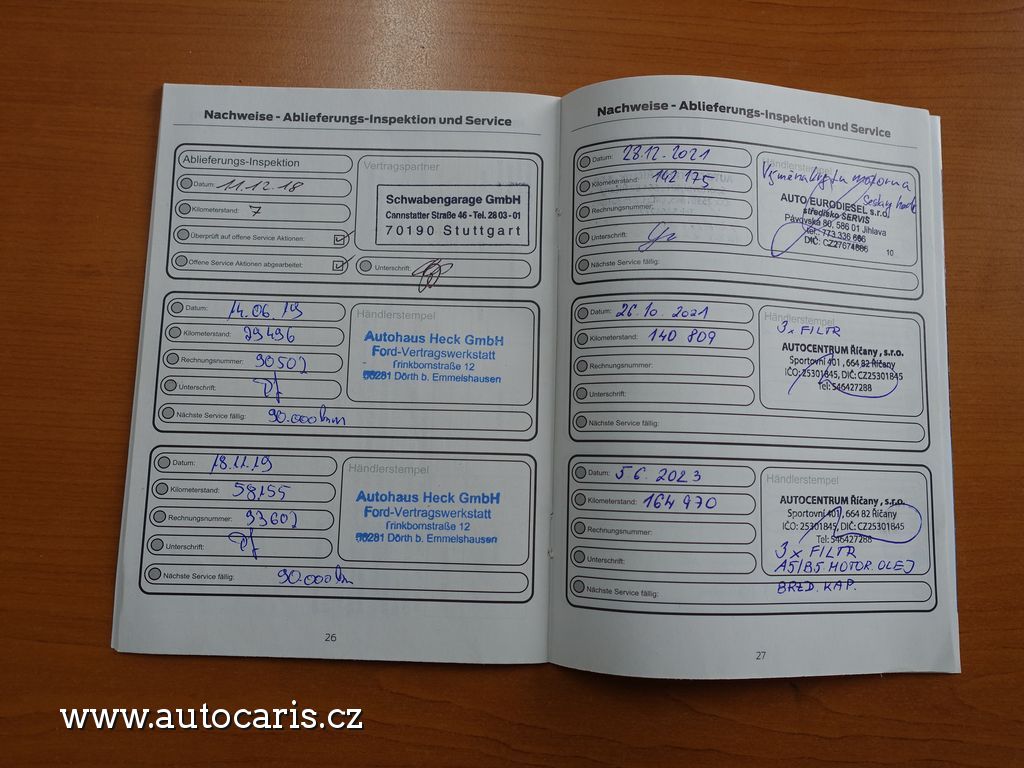 Nachweise - Ablieferungs-Inspektion und Service
Ablieferungs-Inspektion
Datum: 11.12.18
Kilometerstand: 7
Überprüft auf offene Service Aktionen:
Offene Service Aktionen abgearbeitet:
Vertragspartner
Schwabengarage GmbH
Cannstatter Straße 46 - Tel. 28 03 - 01
70190 Stuttgart
Unterschrift:
Datum: 14.06.19
Kilometerstand: 29496
Rechnungsnummer: 90502
Unterschrift:
Nächste Service fällig: 90.000km
Händlerstempel
Autohaus Heck GmbH
Ford-Vertragswerkstatt
Trinkbornstraße 12
56281 Dörth b. Emmelshausen
Datum: 18.11.19
Kilometerstand: 58155
Rechnungsnummer: 93602
Unterschrift:
Nächste Service fällig: 90.000km
Händlerstempel
Autohaus Heck GmbH
Ford-Vertragswerkstatt
Trinkbornstraße 12
56281 Dörth b. Emmelshausen
26
Nachweise - Ablieferungs-Inspektion und Service
Datum: 28.12.2021
Kilometerstand: 142 175
Rechnungsnummer:
Unterschrift:
Nächste Service fällig:
Händlerstempel
Výměna motoru
AUTO EURODIESEL s.r.o.
středisko SERVIS
Pávovská 80, 586 01 Jihlava
tel.: 773 336 666
DIČ: CZ27674886
10
Datum: 26.10.2021
Kilometerstand: 140 809
Rechnungsnummer:
Unterschrift:
Nächste Service fällig:
Händlerstempel
3x FILTR
AUTOCENTRUM Říčany, s.r.o.
Sportovní 401, 664 82 Říčany
IČO: 25301845, DIČ: CZ25301845
Tel: 546427288
Datum: 5 6. 2023
Kilometerstand: 164 970
Rechnungsnummer:
Unterschrift:
Nächste Service fällig:
Händlerstempel
AUTOCENTRUM Říčany, s.r.o.
Sportovní 401, 664 82 Říčany
IČO: 25301845, DIČ: CZ25301845
Tel: 546427288
3x FILTR
A5/B5 MOTOR. OLEJ
BRZD. KAP.
27
www.autocaris.cz